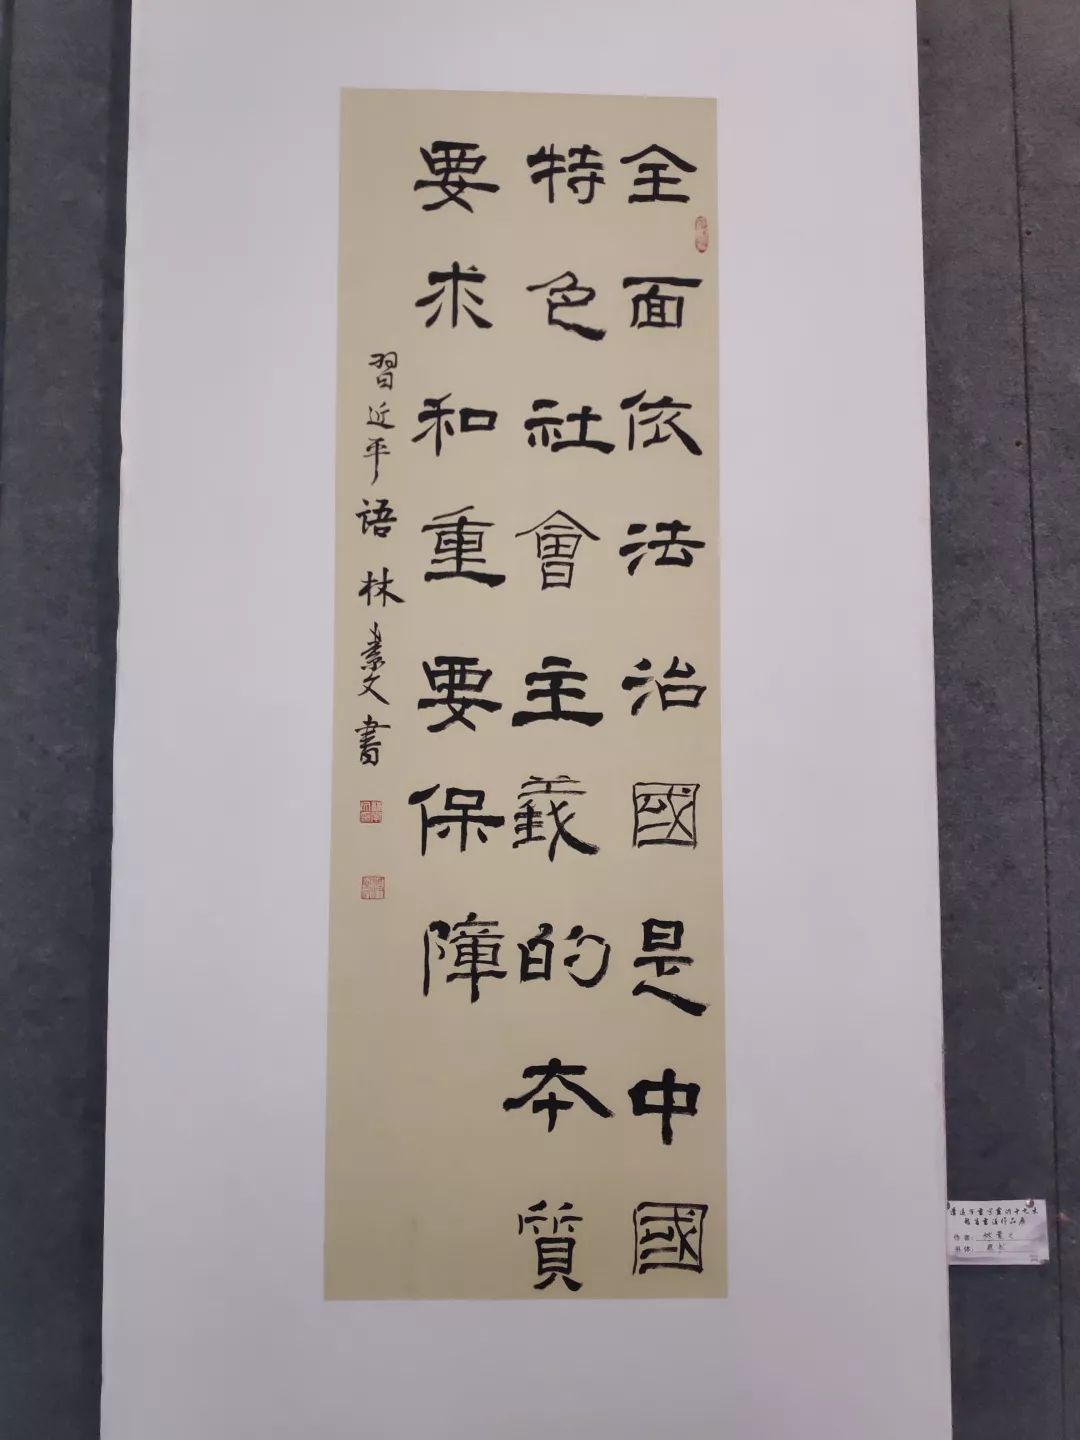 全面依法治國是中國
特色社會主義的本質
要求和重要保障
習近平語 林素文書
作者:
书体: 隶书